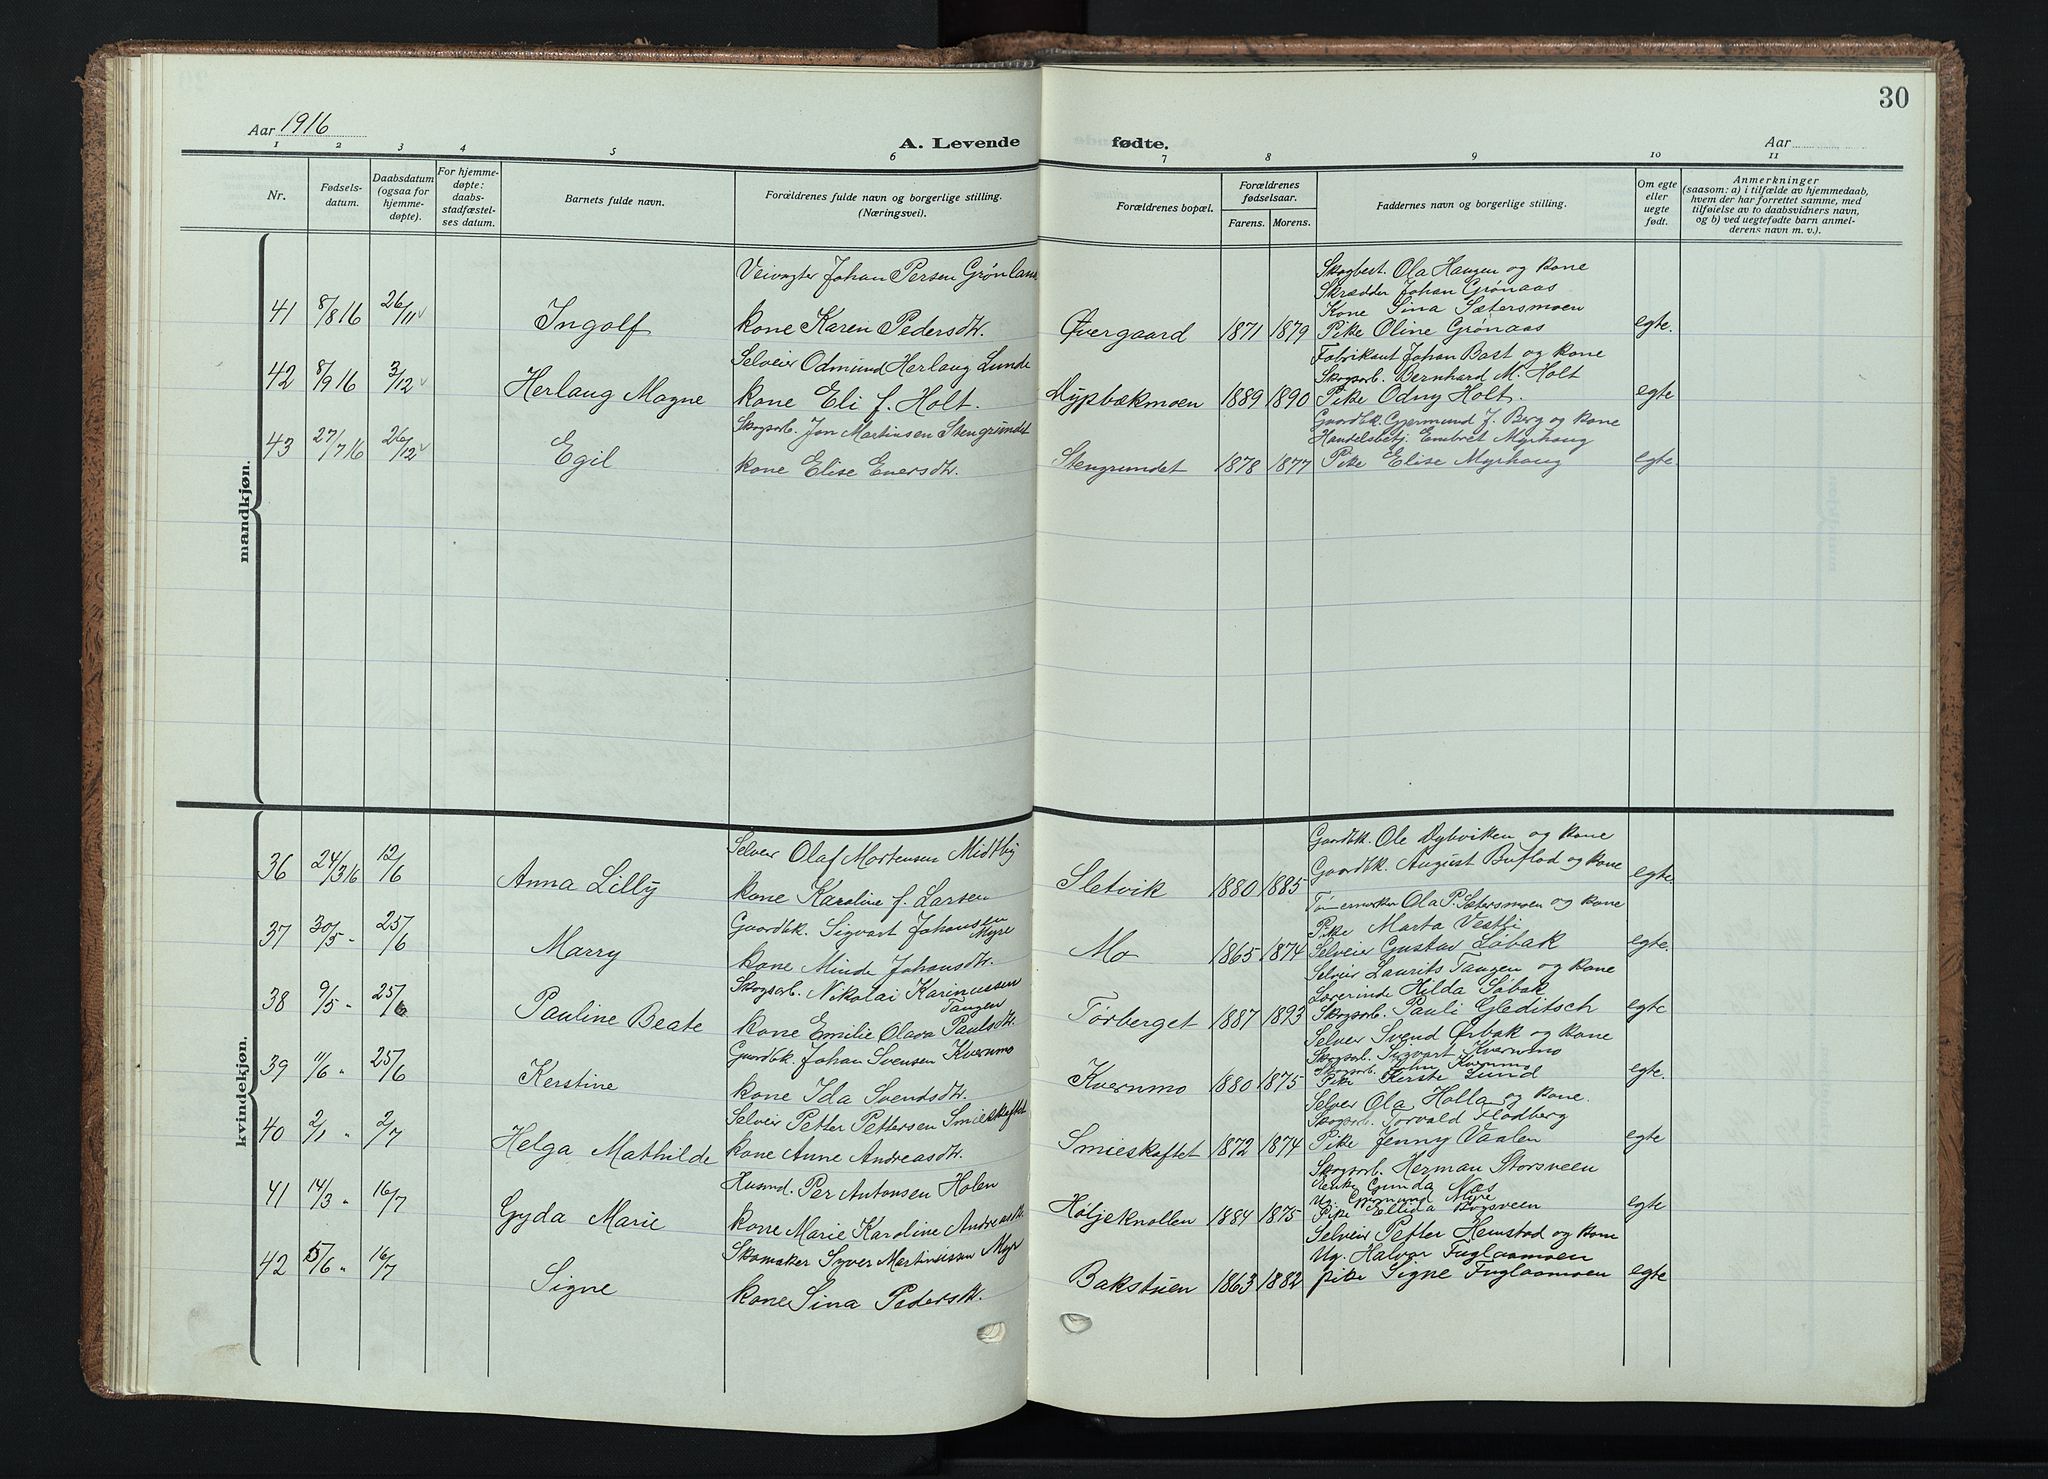 30
Aar 1916
A. Levende fødte.
Aar
1 2 3 4 5 6 7 8 9 10 11
Nr.
Fødsels-
datum.
Daabsdatum
(ogsaa for
hjemme-
døpte).
For hjemme-
døpte:
daabs-
stadfæstel-
ses datum.
Barnets fulde navn.
Forældrenes fulde navn og borgerlige stilling.
(Næringsvei).
Forældrenes bopæl.
Forældrenes
fødselsaar.
Farens. Morens.
Faddernes navn og borgerlige stilling.
Om egte
eller
uegte
født.
Anmerkninger
(saasom: a) i tilfælde av hjemmedaab,
hvem der har forrettet samme, med
tilføielse av to daabsvidners navn,
og b) ved uegtefødte barn anmel-
derens navn m. v.).
mandkjøn.
Veivogter Johan Persen Grønland
41 8/8 16 26/11 Ingolf kone Karen Pedersdtr. Øvergaard 1871 1879 egte.
Skogbest. Ola Haugen og kone
Skrædder Johan Grønaas
Kone Sina Sætersmoen
Pike Oline Grønaas
Selveier Odmund Herlaug Lunde
42 8/9 16 3/12 Herlaug Magne kone Eli f. Holt. Dypbækmoen 1889 1890 egte
Fabrikant Johan Bast og kone
Skogsarb. Bernhard M. Holt
Pike Odny Holt.
Skogsarb. Jon Martinsen Stengrundet
43 27/7 16 26/12 Egil kone Elise Enersdtr. Stengrundet 1878 1877 egte.
Gaardbk. Gjermund J. Berg og kone
Handelsbetj. Embret Myrhaug
Pike Elise Myrhaug
kvindekjøn.
Selveier Olaf Mortensen Midtby
36 24/3 16 12/6 Anna Lilly kone Karoline f. Larsen Sletvik 1880 1885 egte.
Gaardbk. Ole Dybviken og kone
Gaardbk. August Buflod og kone
Gaardbk. Sigvart Johansen Myre
37 30/5 - 25/6 Marry kone Minde Johansdtr. Mo 1865 1874 egte.
Tømmermerker Ola P. Sætersmoen og kone
Pike Marta Vestli
Selveier Gustav Løbak
Skogsarb. Nikolai Karinussen Tangen
38 9/5 " 25/6 Pauline Beate kone Emilie Olava Paulsdtr. Torberget 1887 1893 egte
Selveier Laurits Tangen og kone
Lærerinde Hilda Løbak
Skogsarb. Pauli Gleditsch
Gaardbk. Johan Svensen Kvernmo
39 11/6 " 25/6 Kerstine kone Ida Svendsdtr. Kvernmo 1880 1875 egte.
Selveier Svend Ørbak og kone
Skogsarb. Sigvart Kvernmo
Skogsarb. John Kvernmo
Pike Kerste Lund
Selveier Petter Pettersen Smieskaftet
40 2/1 " 2/7 Helga Mathilde kone Anne Andreasdtr. Smieskaftet 1872 1874 egte
Selveier Ola Holla og kone.
Skogsarb. Torvald Flodberg
Pike Jenny Vaalen
Husmd. Per Antonsen Holen
41 14/3 " 16/7 Gyda Marie kone Marie Karoline Andreasdtr. Høljeknollen 1884 1875 egte
Skogsarb. Herman Storsveen
Enke Gunda Næs
Ug. Gjermund Myre
Pike Ellida Bogsveen
Skomaker Syver Martinussen Myr
42 15/6 " 16/7 Signe kone Sina Pedersdtr. Bakstuen 1863 1882 egte
Selveier Petter Hemstad og kone
Ug. Halvor Fuglaamoen
pike Signe Fuglaamoen